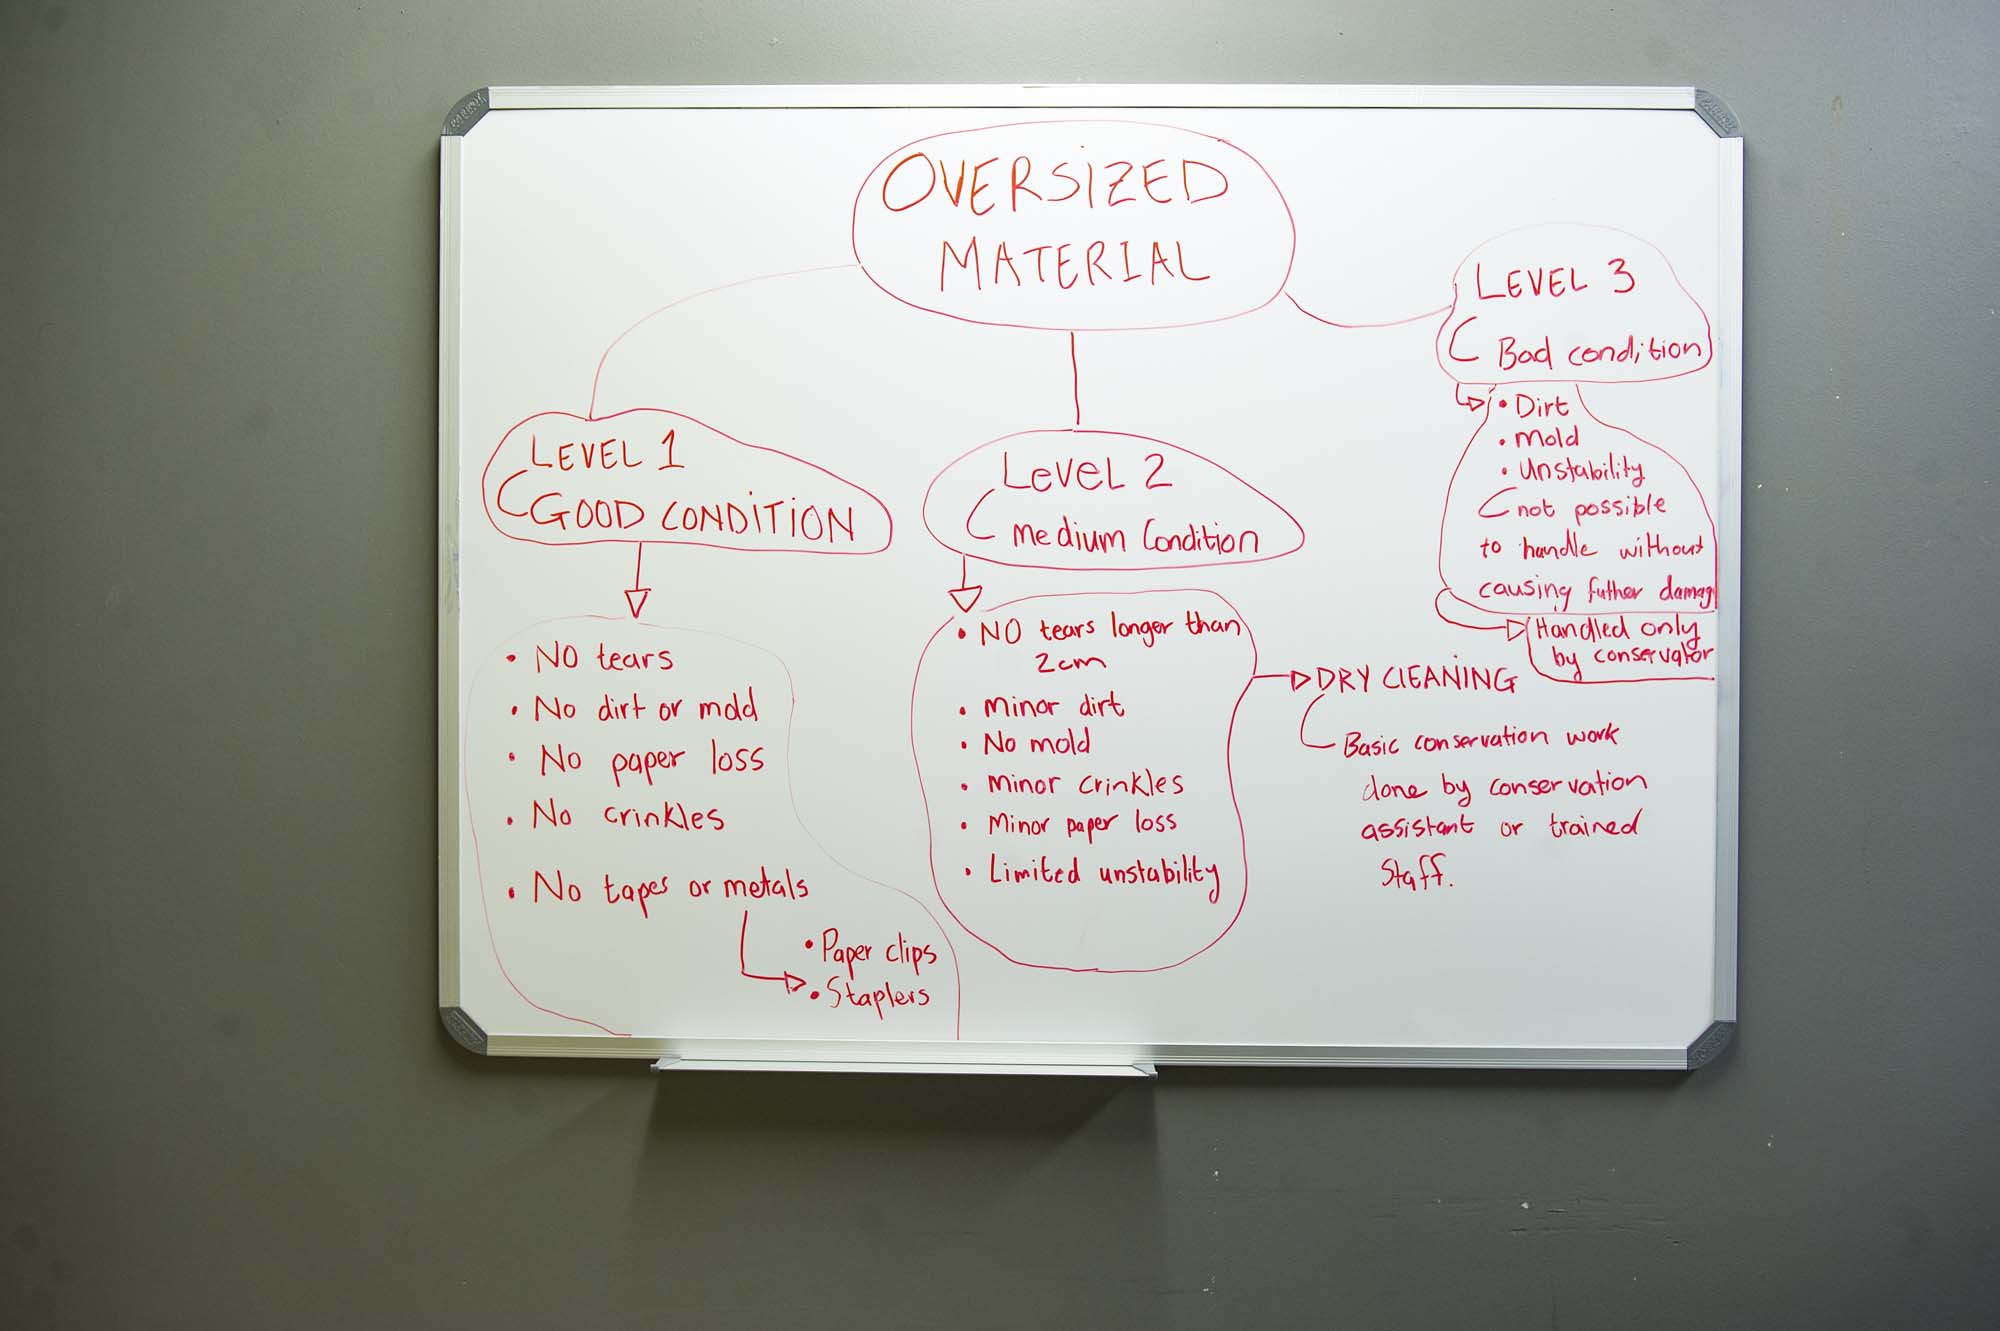 OVERSIZED
MATERIAL
LEVEL 1
GOOD CONDITION
• NO tears
• No dirt or mold
• No paper loss
• No crinkles
• No tapes or metals
• Paper clips
• Staplers
Level 2
medium Condition
• NO tears longer than
2cm
• Minor dirt
• No mold
• Minor crinkles
• Minor paper loss
• Limited unstability
DRY CLEANING
Basic conservation work
done by conservation
assistant or trained
Staff.
LEVEL 3
Bad condition
• Dirt
• Mold
• Unstability
not possible
to handle without
causing futher damag
Handled only
by conservator